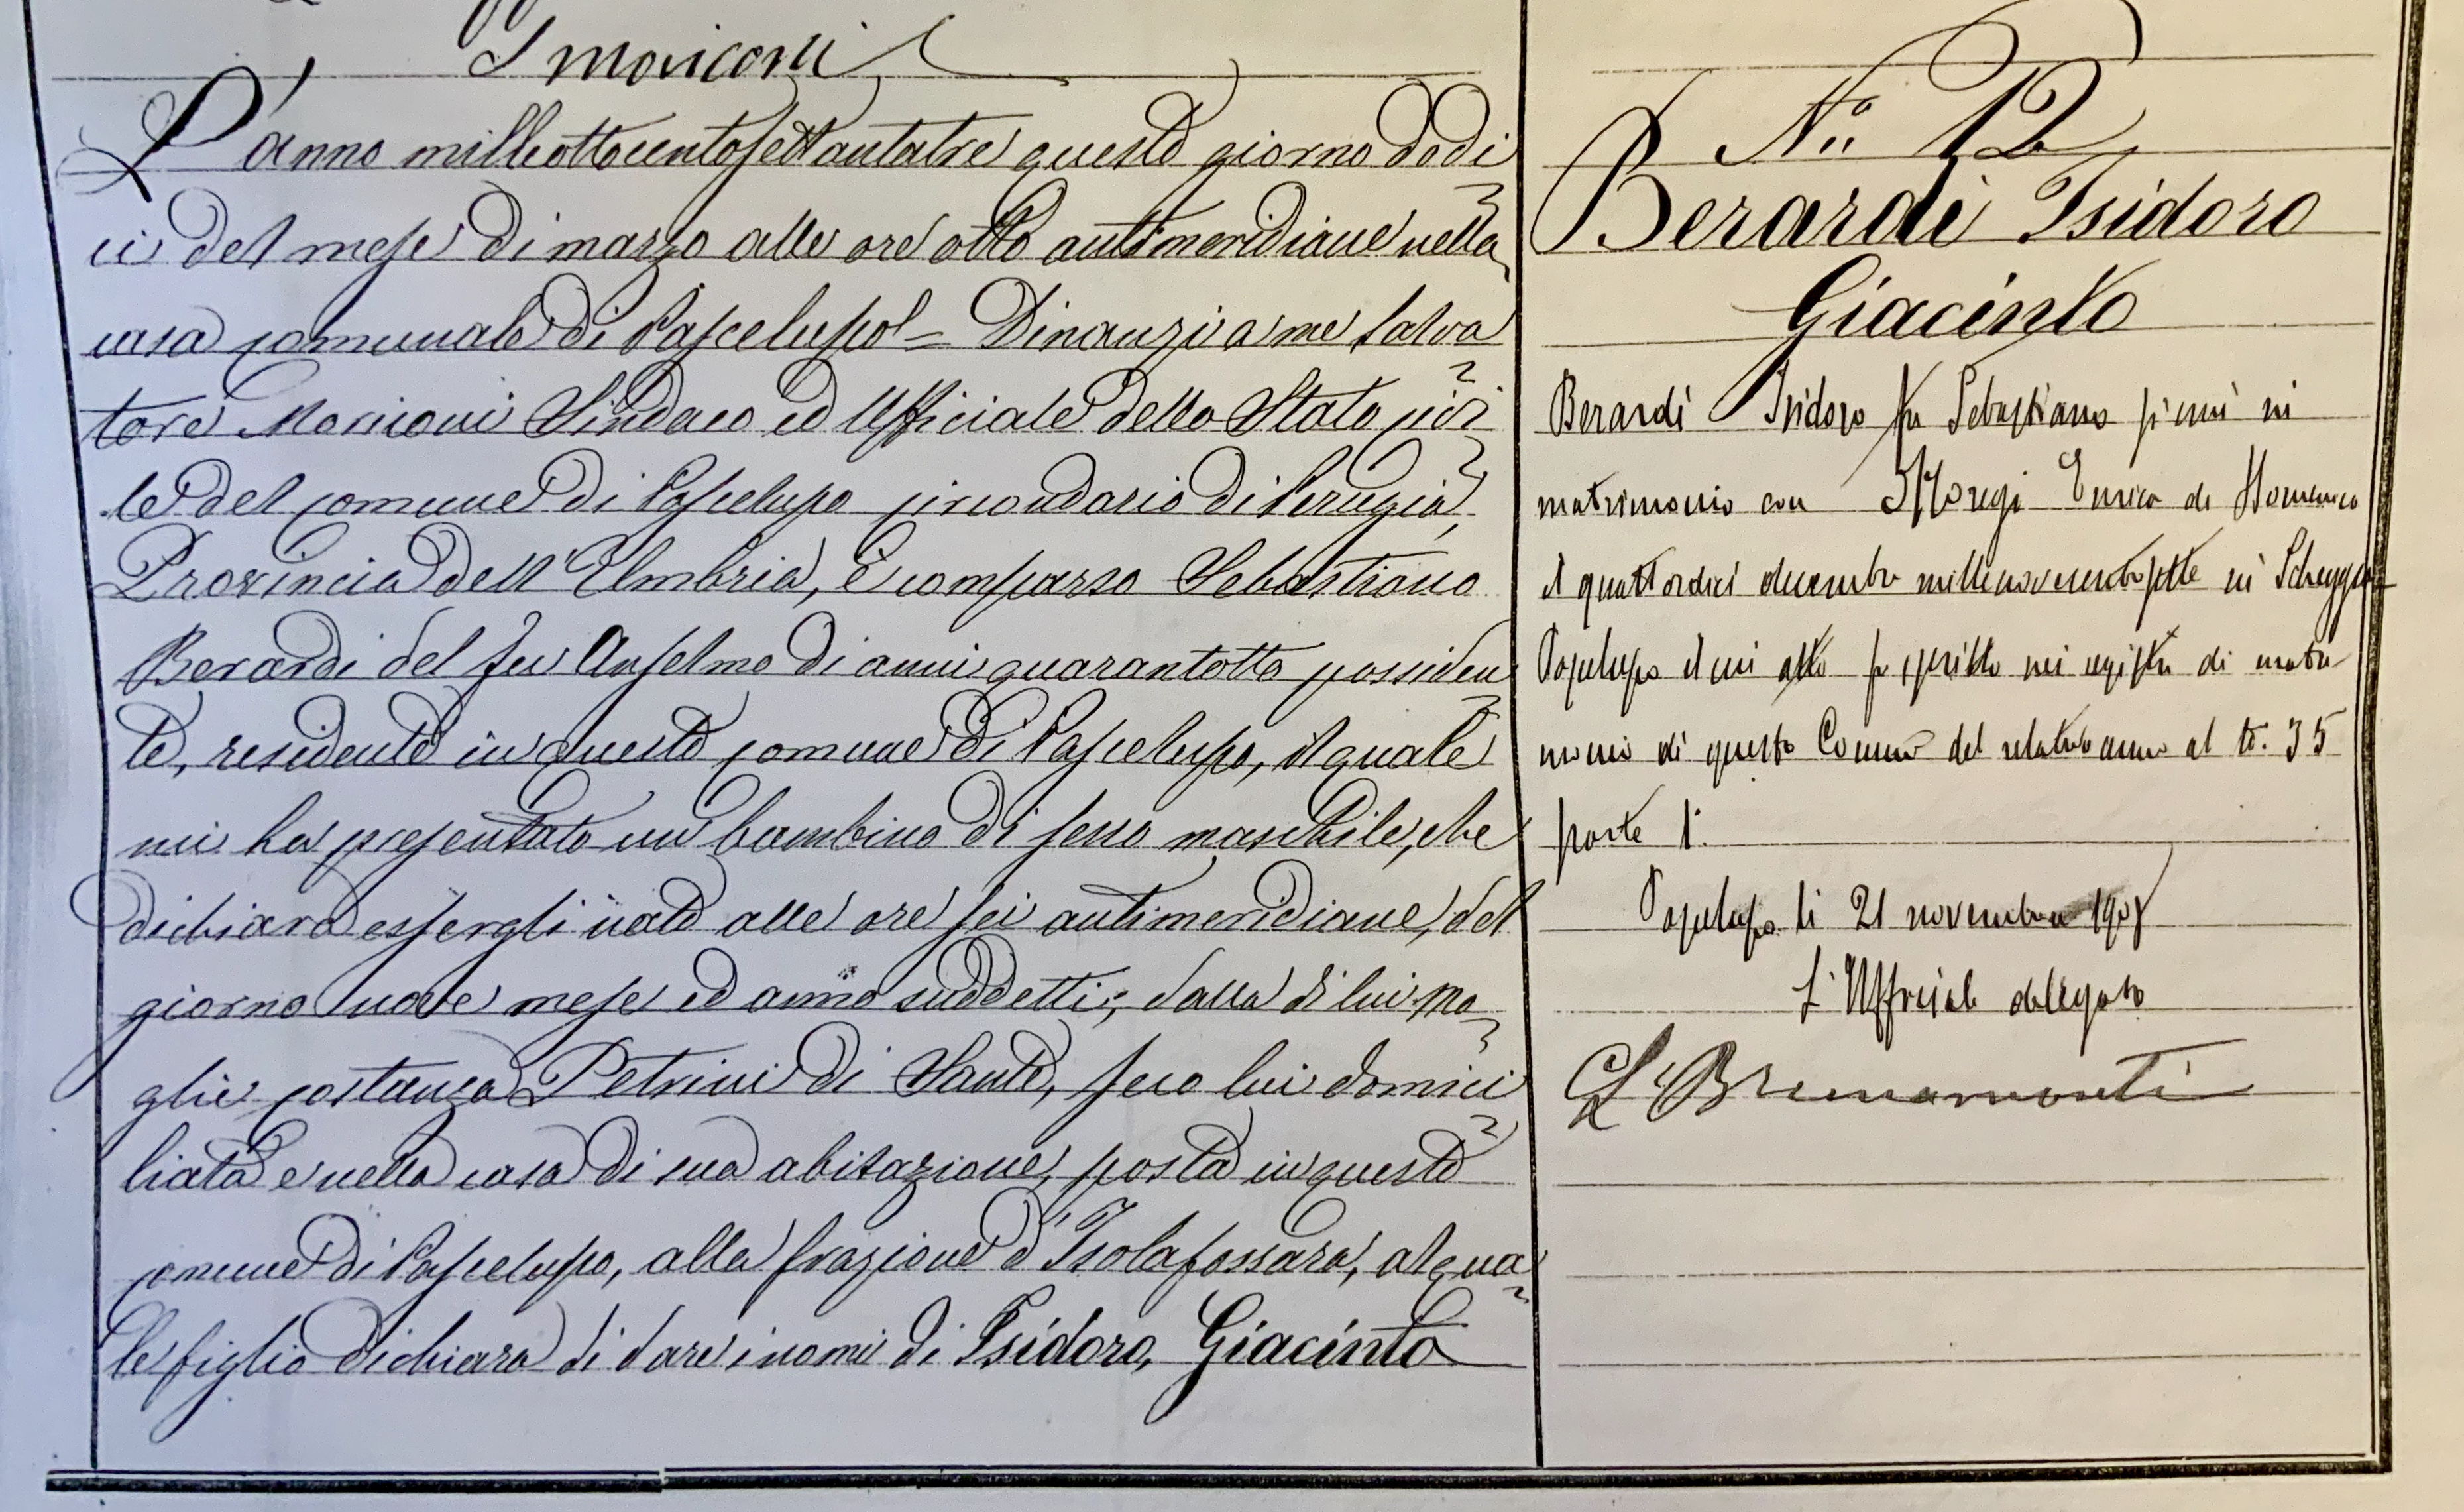 S Moriconi
L'anno milleottocentosettantatre questo giorno dodi
ci del mese di marzo alle ore otto antimeridiane nella
casa comunale di Pascelupo = Dinanzi a me Salva
tore Moriconi Sindaco ed Ufficiale dello Stato civi
le del comune di Pascelupo circondario di Perugia,
Provincia dell'Umbria, è comparso Sebastiano
Berardi del fu Anselmo di anni quarantotto possiden
te, residente in questo comune di Pascelupo, il quale
mi ha presentato un bambino di sesso maschile, che
dichiara essergli nato alle ore sei antimeridiane, del
giorno nove mese ed anno suddetti; dalla di lui mo
glie costanza Petrini di Sante, seco lui domici
liata e nella casa di sua abitazione, posta in questo
comune di Pascelupo, alla frazione d'Isolafossara, al qua
le figlio dichiara di dare i nomi di Isidoro, Giacinto
N.: 12
Berardi Isidoro
Giacinto
Berardi Isidoro fu Sebastiano si unì in
matrimonio con Moregi Enrica di Domenico
il quattordici decembre millenovecentosette in Scheggia
Pascelupo il cui atto fu scritto nei registri di matri
monio di questo Comune del relativo anno al N. 35
parte I.
Pascelupo li 21 novembre 1908
L'Ufficiale delegato
L Brunamonti